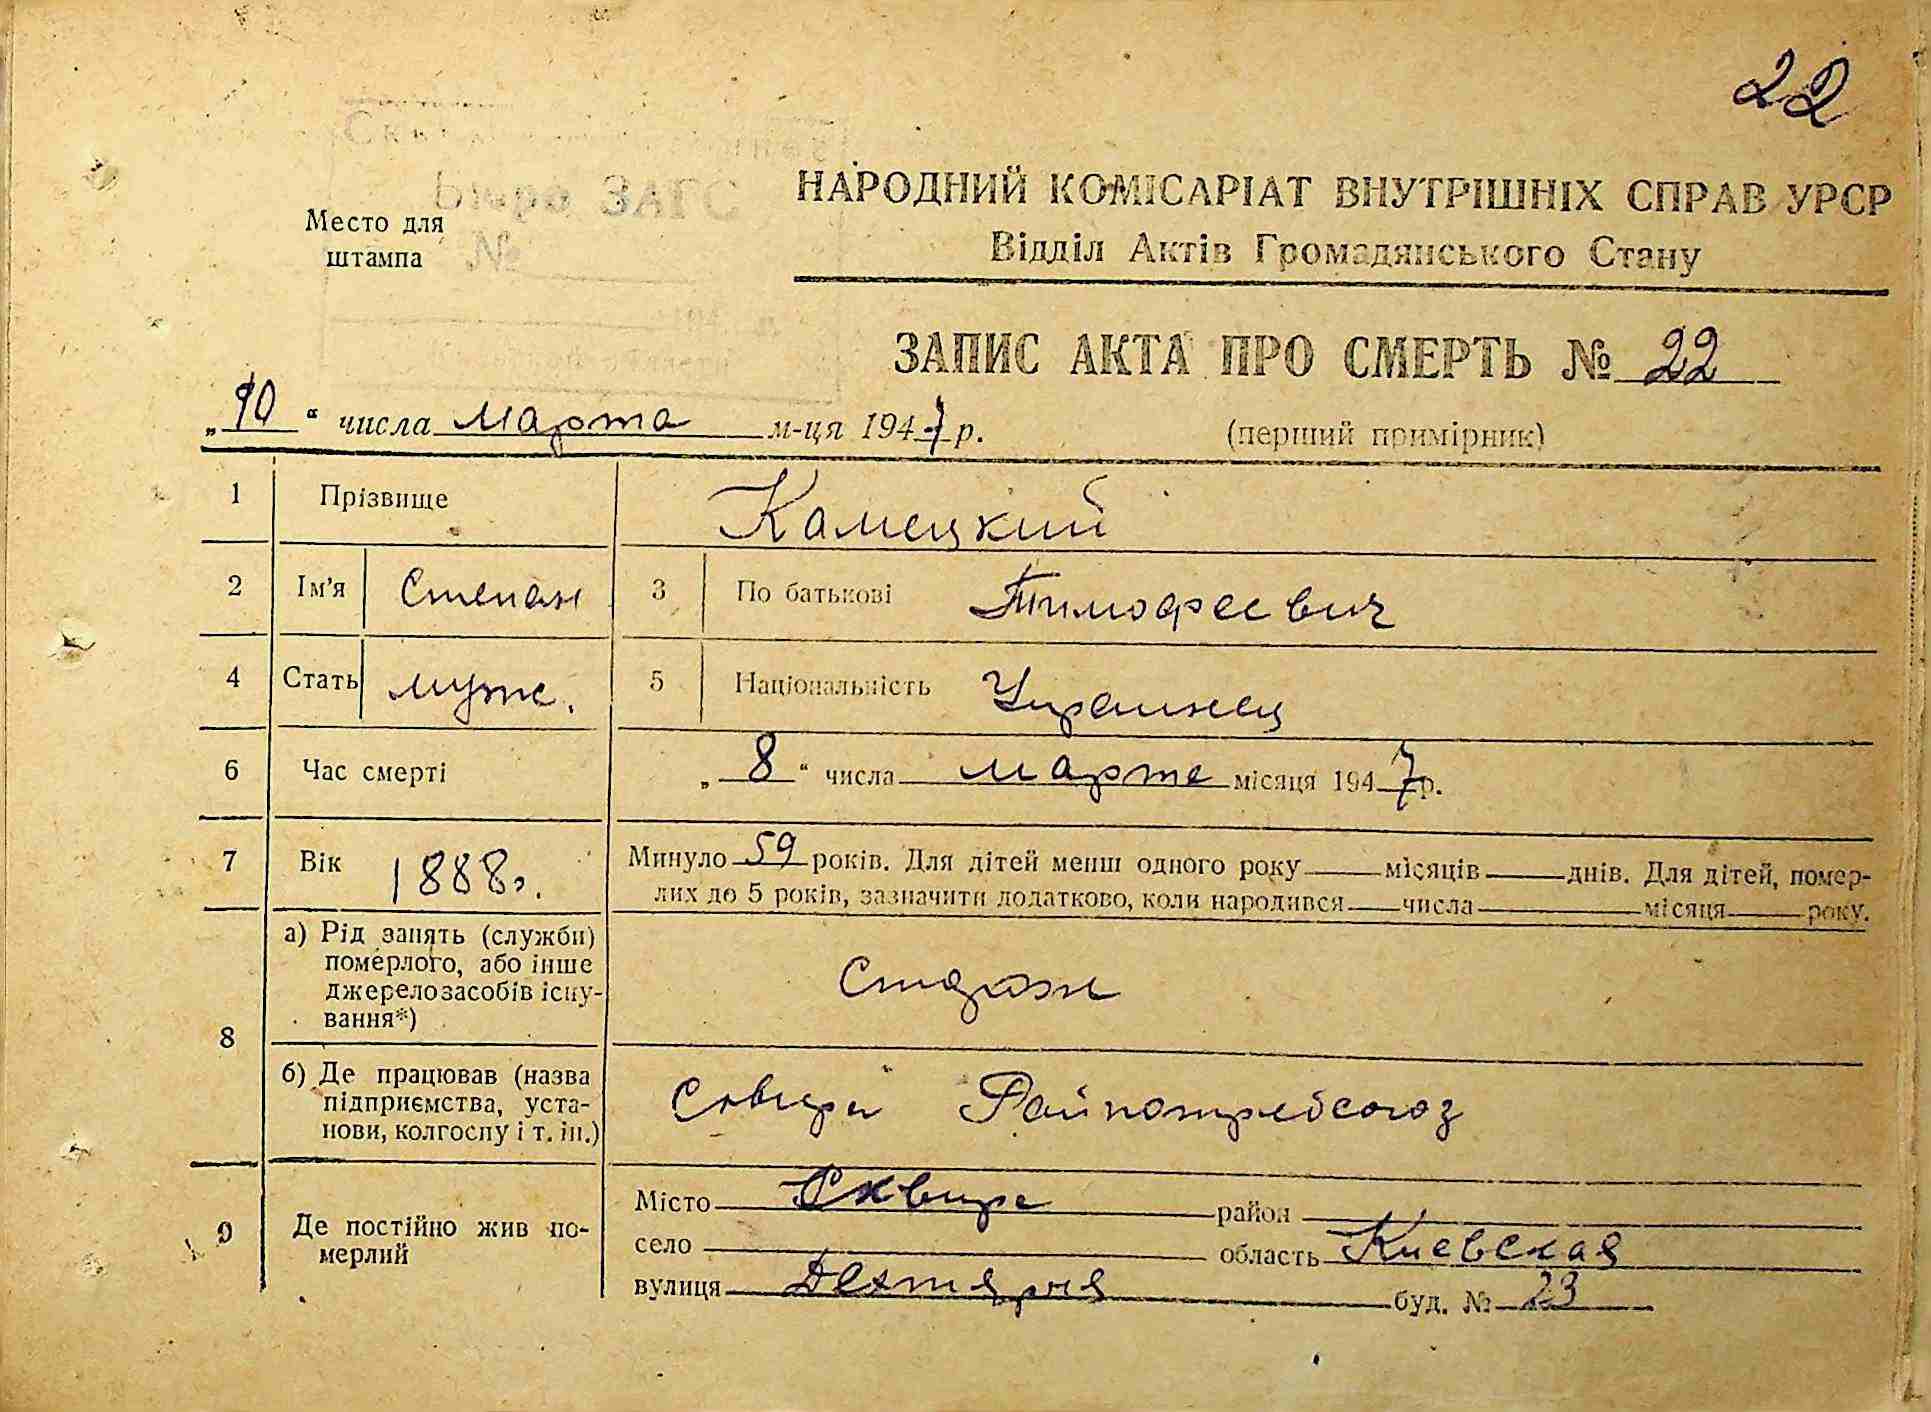 22
Бюро ЗАГС
№
Место для
штампа
НАРОДНИЙ КОМІСАРІАТ ВНУТРІШНІХ СПРАВ УРСР
Відділ Актів Громадянського Стану
ЗАПИС АКТА ПРО СМЕРТЬ № 22
„10“ числа марта м-ця 1947 р.
(перший примірник)
1 Прізвище Камецкий
2 Ім'я Степан 3 По батькові Тимофеевич
4 Стать муж. 5 Національність Украинец
6 Час смерті „8“ числа марта місяця 1947 р.
7 Вік 1888г. Минуло 59 років. Для дітей менш одного року місяців днів. Для дітей, помер-
лих до 5 років, зазначити додатково, коли народився числа місяця року.
8 а) Рід занять (служби)
померлого, або інше
джерело засобів існу-
вання*)
б) Де працював (назва
підприємства, уста-
нови, колгоспу і т. ін.)
Райпотребсоюз
9 Де постійно жив по-
мерлий
Місто Сквира район
село область Киевская
вулиця Дехтярня буд. № 23